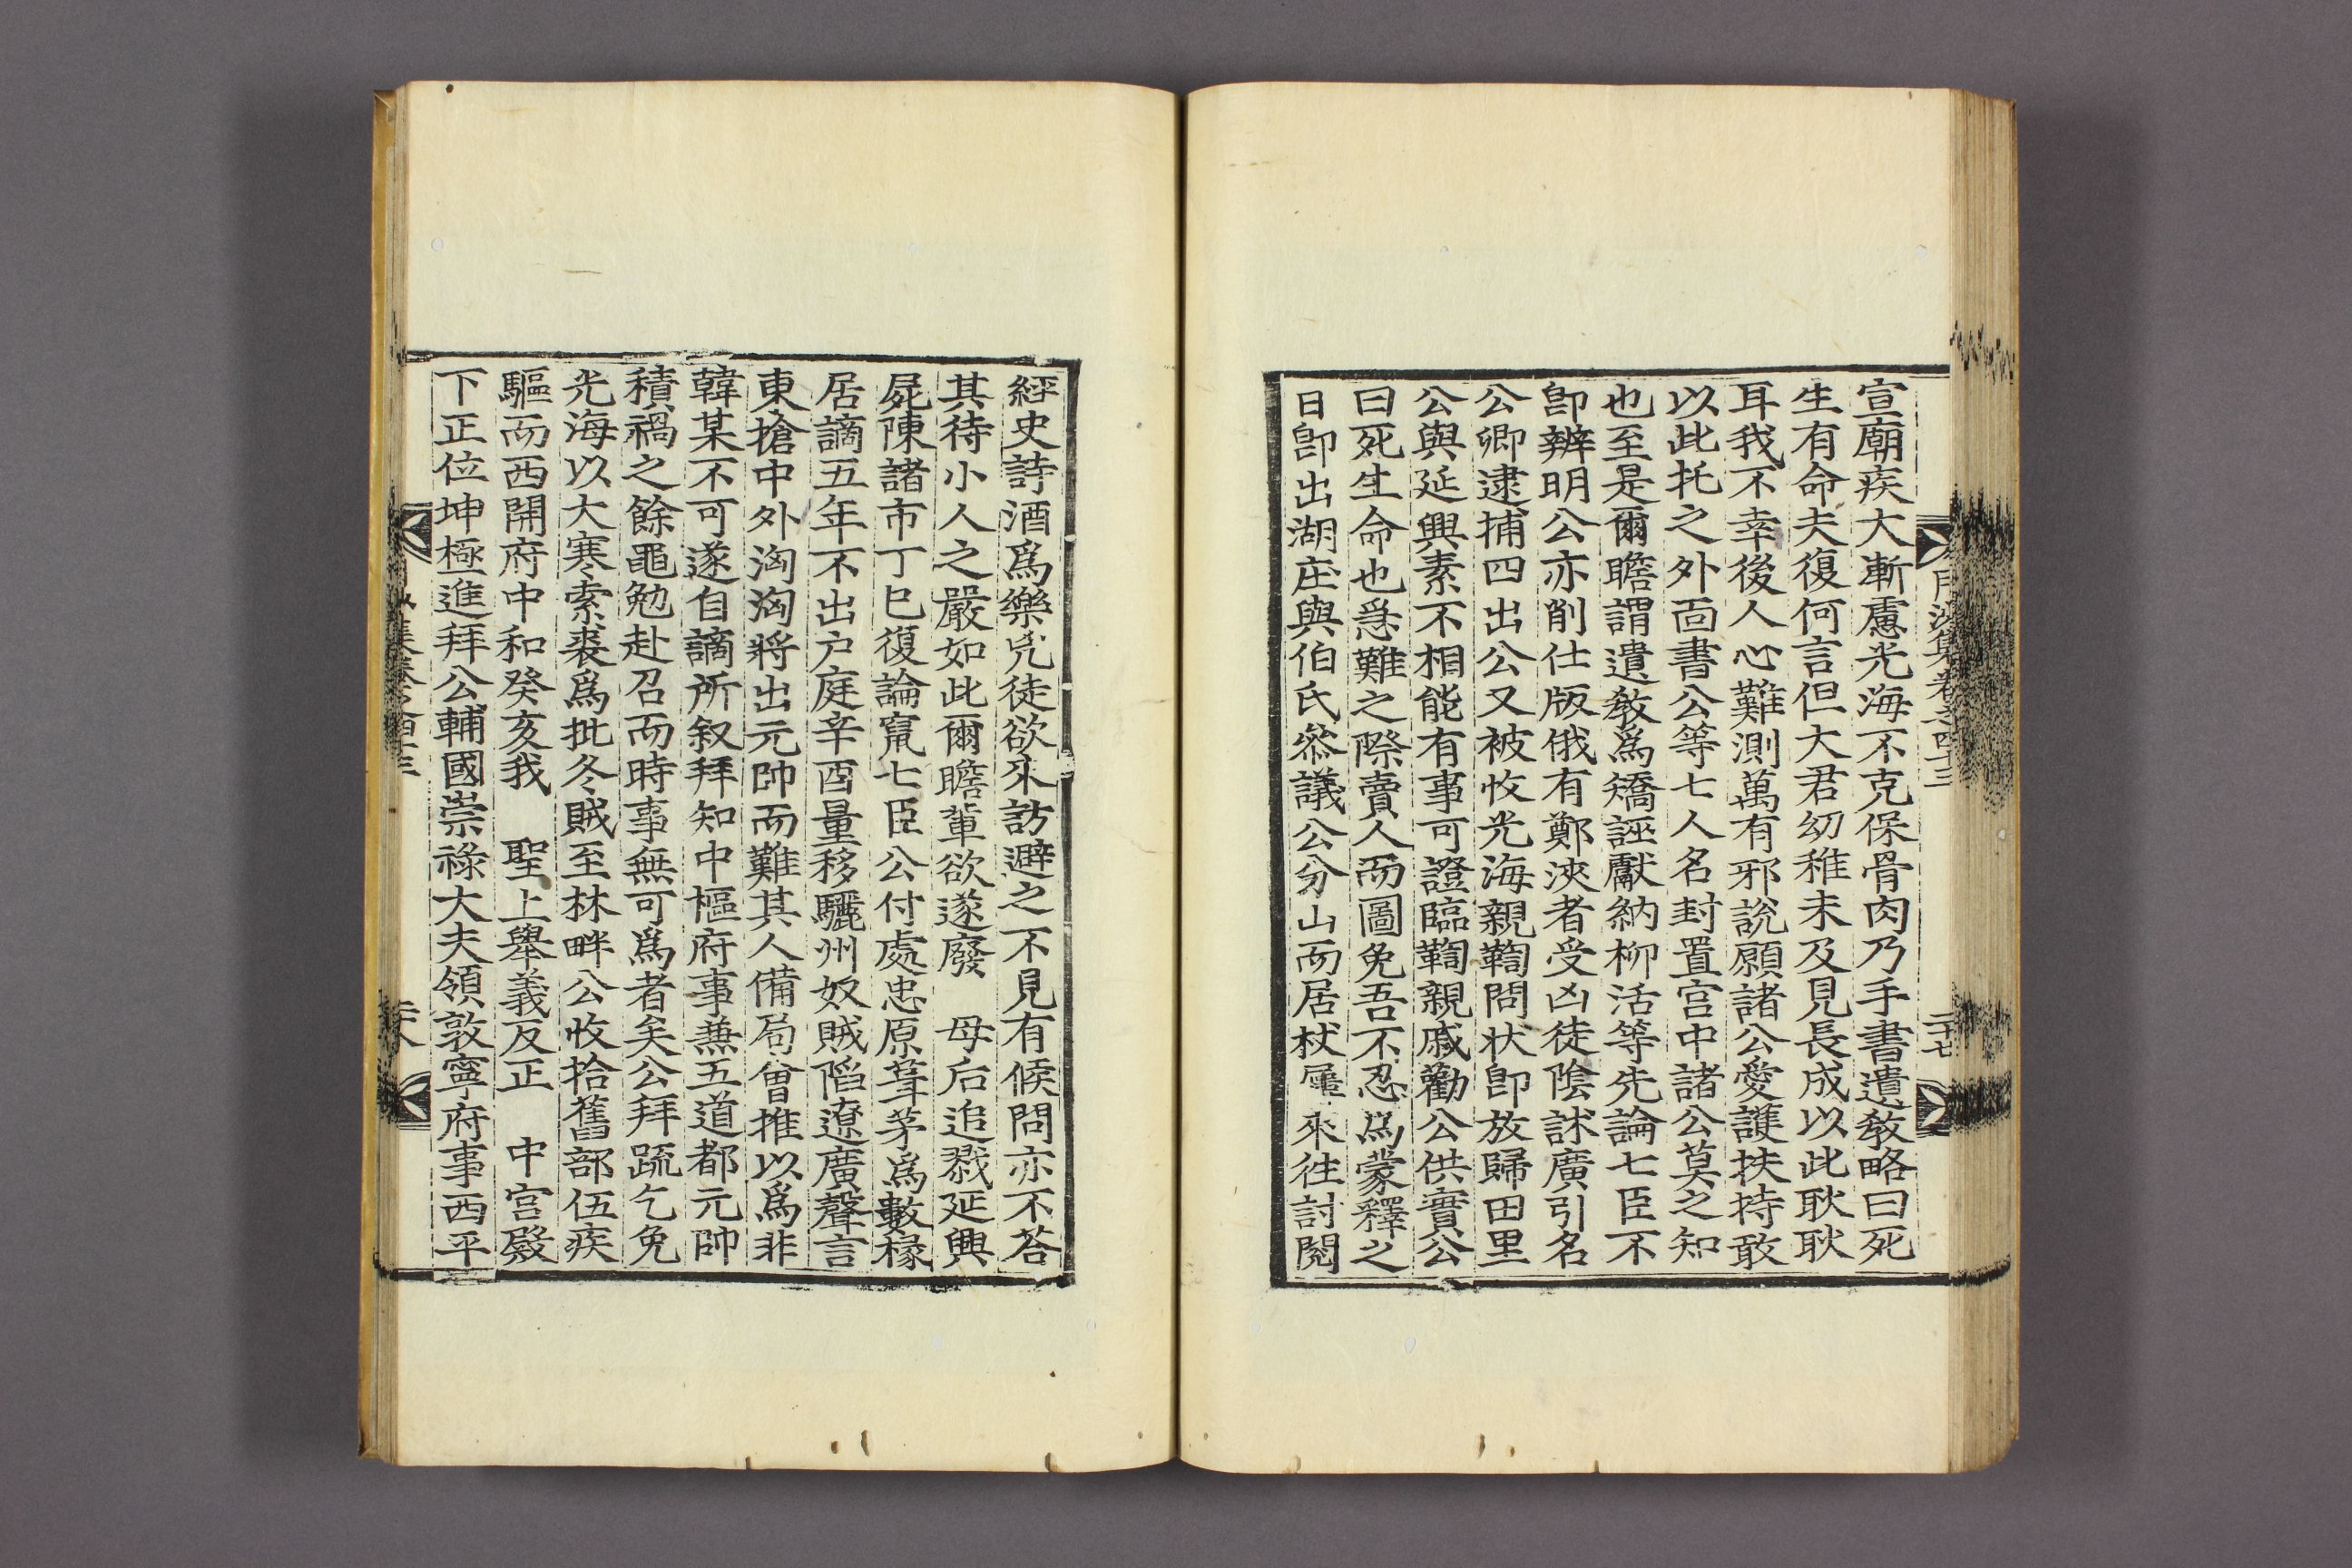 宣廟疾大漸慮光海不克保骨肉乃手書遺敎略曰死
生有命夫復何言但大君幼稚未及見長成以此耿耿
耳我不幸後人心難測萬有邪說願諸公愛護扶持敢
以此托之外面書公等七人名封置宮中諸公莫之知
也至是爾瞻謂遺敎爲矯誣獻納柳活等先論七臣不
卽辨明公亦削仕版俄有鄭浹者受凶徒陰訹廣引名
公卿逮捕四出公又被收光海親鞫問狀卽放歸田里
公與延興素不相能有事可證臨鞫親戚勸公供實公
曰死生命也急難之際賣人而圖免吾不忍爲蒙釋之
日卽出湖庄與伯氏叅議公分山而居杖屨來往討閱
月沙集卷之四十三
二十七
經史詩酒爲樂兇徒欲來訪避之不見有候問亦不荅
其待小人之嚴如此爾瞻輩欲遂廢 母后追戮延興
屍陳諸市丁巳復論竄七臣公付處忠原葺茅爲數椽
居謫五年不出戶庭辛酉量移驪州奴賊陷遼廣聲言
東搶中外洶洶將出元帥而難其人備局會推以爲非
韓某不可遂自謫所叙拜知中樞府事兼五道都元帥
積禍之餘黽勉赴召而時事無可爲者矣公拜疏乞免
光海以大寒索裘爲批冬賊至林畔公收拾舊部伍疾
驅而西開府中和癸亥我 聖上舉義反正 中宮殿
下正位坤極進拜公輔國崇祿大夫領敦寧府事西平